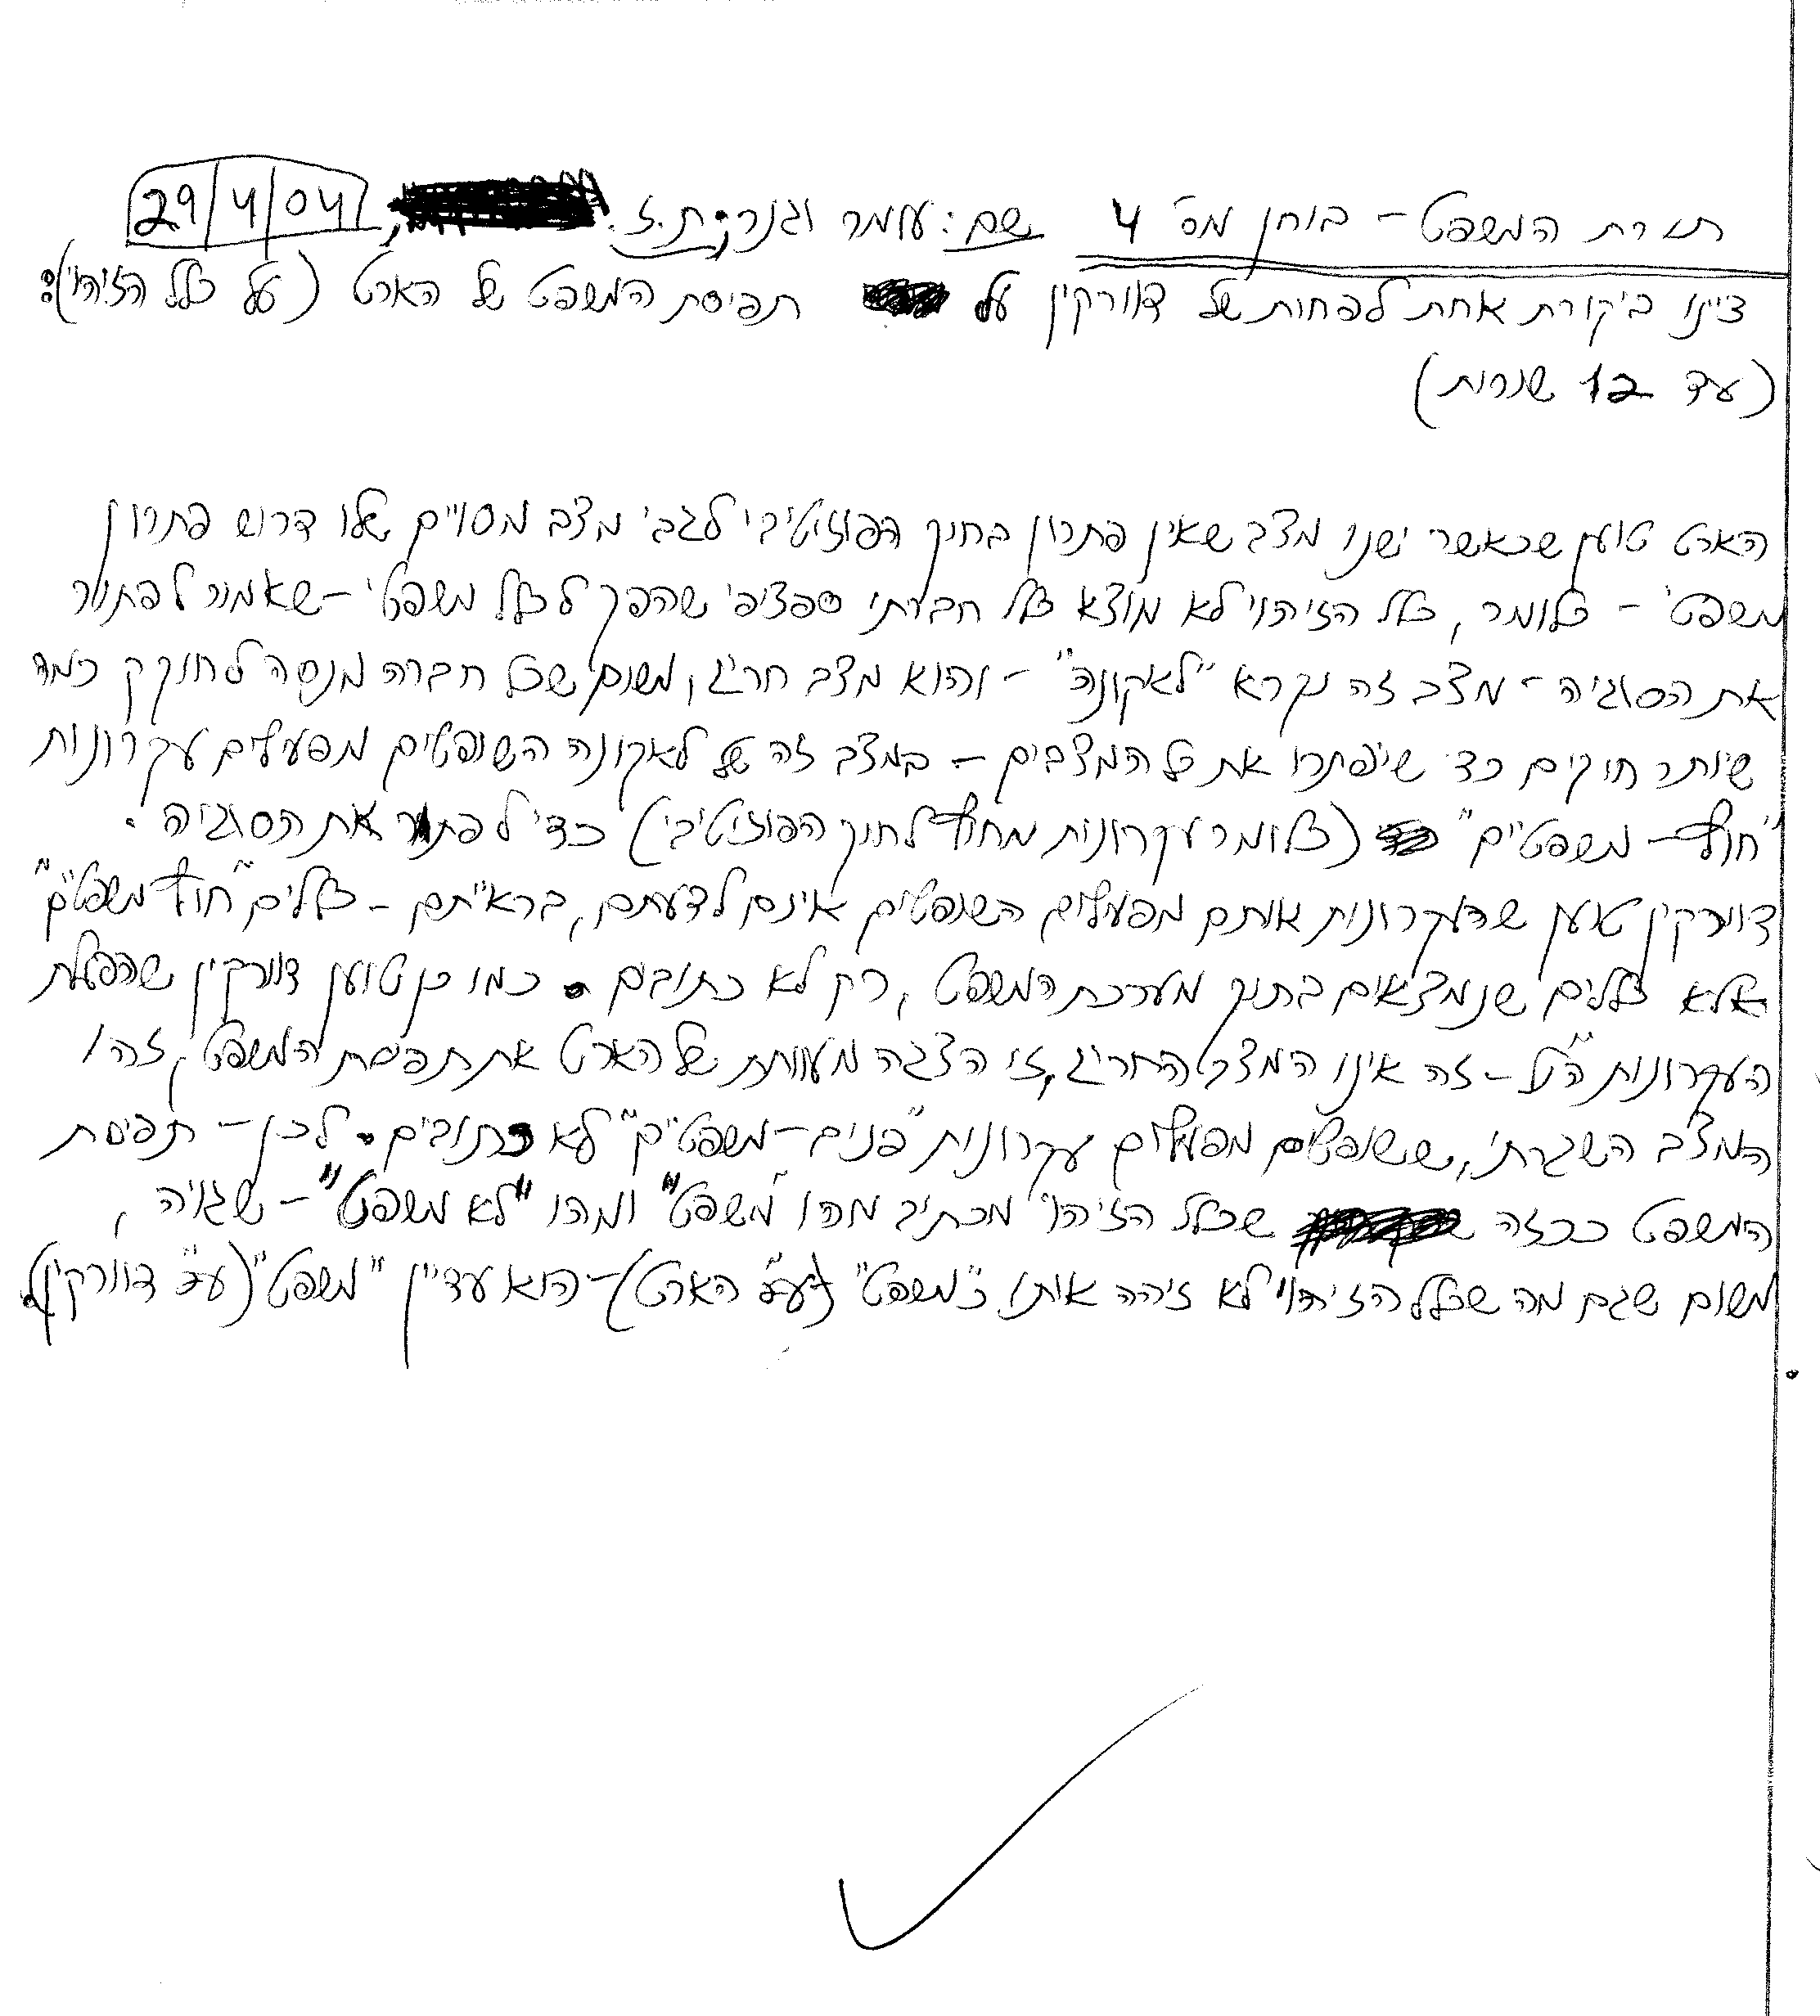 תורת המשפט - בוחן מס' 4 שם: עומר וגנר, ת.ז. , 29/4/04
ציינו ביקורת אחת לפחות של דוורקין על תפיסת המשפט של הארט (על כלל הזיהוי):
(עד 12 שורות)
הארט טוען שכאשר ישנו מצב שאין פתרון בחוק הפוזיטיבי לגבי מצב מסויים שלו דרוש פתרון
משפטי - כלומר, כלל הזיהוי לא מוצא כלל חברתי ספציפי שהפך לכלל משפטי - שאמור לפתור
את הסוגיה - מצב זה נקרא "לאקונה" - והוא מצב חריג, משום שכל חברה מנסה לחוקק כמה
שיותר חוקים כדי שיפתרו את כל המצבים - במצב זה של לאקונה השופטים מפעילים עקרונות
"חוץ-משפטיים" (כלומר עקרונות מחוץ לחוק הפוזיטיבי) כדי לפתור את הסוגיה.
דוורקין טוען שהעקרונות אותם מפעילים השופטים אינם לדעתם, בראייתם - כללים "חוץ משפטיים"
אלא כללים שנמצאים בתוך מערכת המשפט, רק לא כתובים. כמו כן טוען דוורקין שהפעלת
העקרונות הנ"ל - זה אינו המצב החריג, זו הצגה מעוותת של הארט את תפיסת המשפט, זהו
המצב השגרתי, ששופטים מפעילים עקרונות "פנים-משפטיים" לא כתובים. לכן - תפיסת
המשפט ככזה שכלל הזיהוי מכתיב מהו "משפט" ומהו "לא משפט" - שגויה,
משום שגם מה שכלל הזיהוי לא זיהה אותו כ"משפט" (ע"פ הארט) - הוא עדיין "משפט" (ע"פ דוורקין).